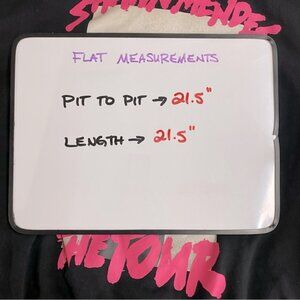 SHAWN MENDES
FLAT MEASUREMENTS
PIT TO PIT → 21.5"
LENGTH → 21.5"
THE TOUR